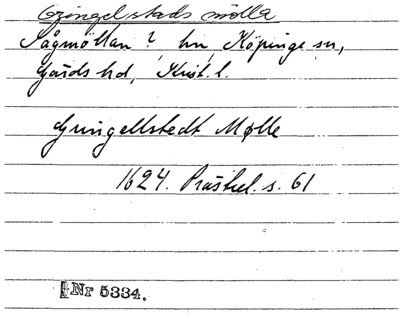 Gringelstads mølla
Sågmöllan? hn, Köpinge sn,
Gärds hd, Krist. l.
Gringellstedt Mølle
1624. Prästrel. s. 61
Nr 5334.